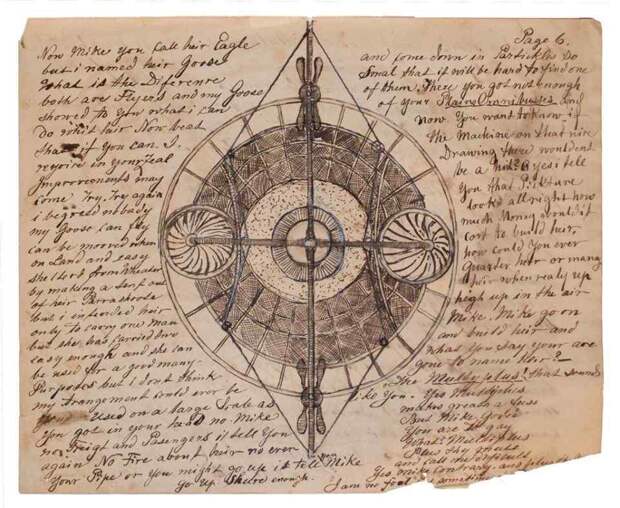 Now Mike you Call heir Eagle
but i named heir Goose
What is the Difference
both are Flyers and my Goose
showed to You what i can
do whit Now beat
that if You can. I
in your Zeal
Improvements may
come. Try, Try again
i nobady
my Goose can fly
can be moored down
on Land and easy
sheltert from Wheater
by making a tent out
at heir Parrashoode
but i intended heir
only to carry one man
but she has carried two
easy enough and she can
be used for a good many
Purposes but i dont think
my Arrangement could ever be
Used on a large Scale as
You got in your head no. Mike
no! Freigt and Pasengers i tell You
again No Fire about heir no even
Your Pipe or You might go up i tell you Mike
Go up Shure enough.
Page 6.
and come down in Partickles so
Smal that it will be hard to find one
of them. There you got not enough
of your and
now You want to know if
the Machine on that nice
Drawing there wouldent
be a yes i tell
You that Pickture
looks all right how
much Money would it
cost to build heir,
how could You ever
Quarter heir or many
heir when realy up
high up in the air
Mike. Mike go on
and build heir and
What You say Your are
gone to name heir?
the Multyplus! that sounds
like You. Yes Multiplus
makes great a fuse
But Mike
You are so gay
What Multiplus
Plus thy
and call the difficult
Yes Mike Contrary and
I am no fool sometimes